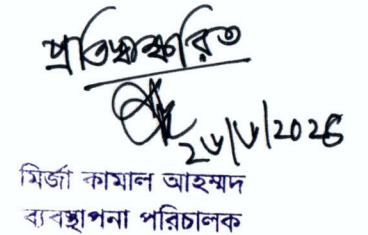 প্রতিস্বাক্ষরিত
মির্জা কামাল আহম্মদ
ব্যবস্থাপনা পরিচালক